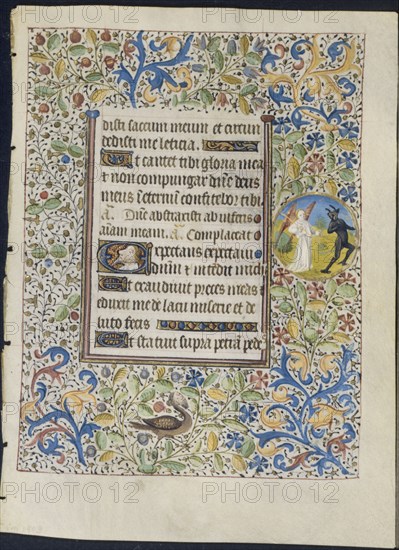 disti saccum meum et circun
dedisti me leticia.
Et cantet tibi gloria mea
et non compungar dñe deus
meus in eternum confitebor tibi
a. Dñe abstraxisti ab inferis
aĩam meam. a. Complaceat
Expectans expectaui
dñum et intendit michi
Et exaudiuit preces meas et
eduxit me de lacu miserie et de
luto fecis
Et statuit supra petram pede
PHOTO 12